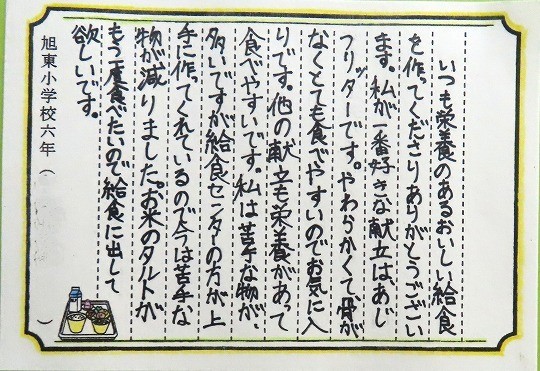 いつも栄養のあるおいしい給食
を作ってくださりありがとうござい
ます。私が一番好きな献立は、あじ
フリッターです。やわらかくて、骨が
なくとても食べやすいのでお気に入
りです。他の献立も栄養があって
食べやすいです。私は苦手な物が、
多いですが給食センターの方が上
手に作ってくれているので今は苦手な
物が減りました。お米のタルトが
もう一度食べたいので給食に出して
欲しいです。
旭東小学校六年（　　　）